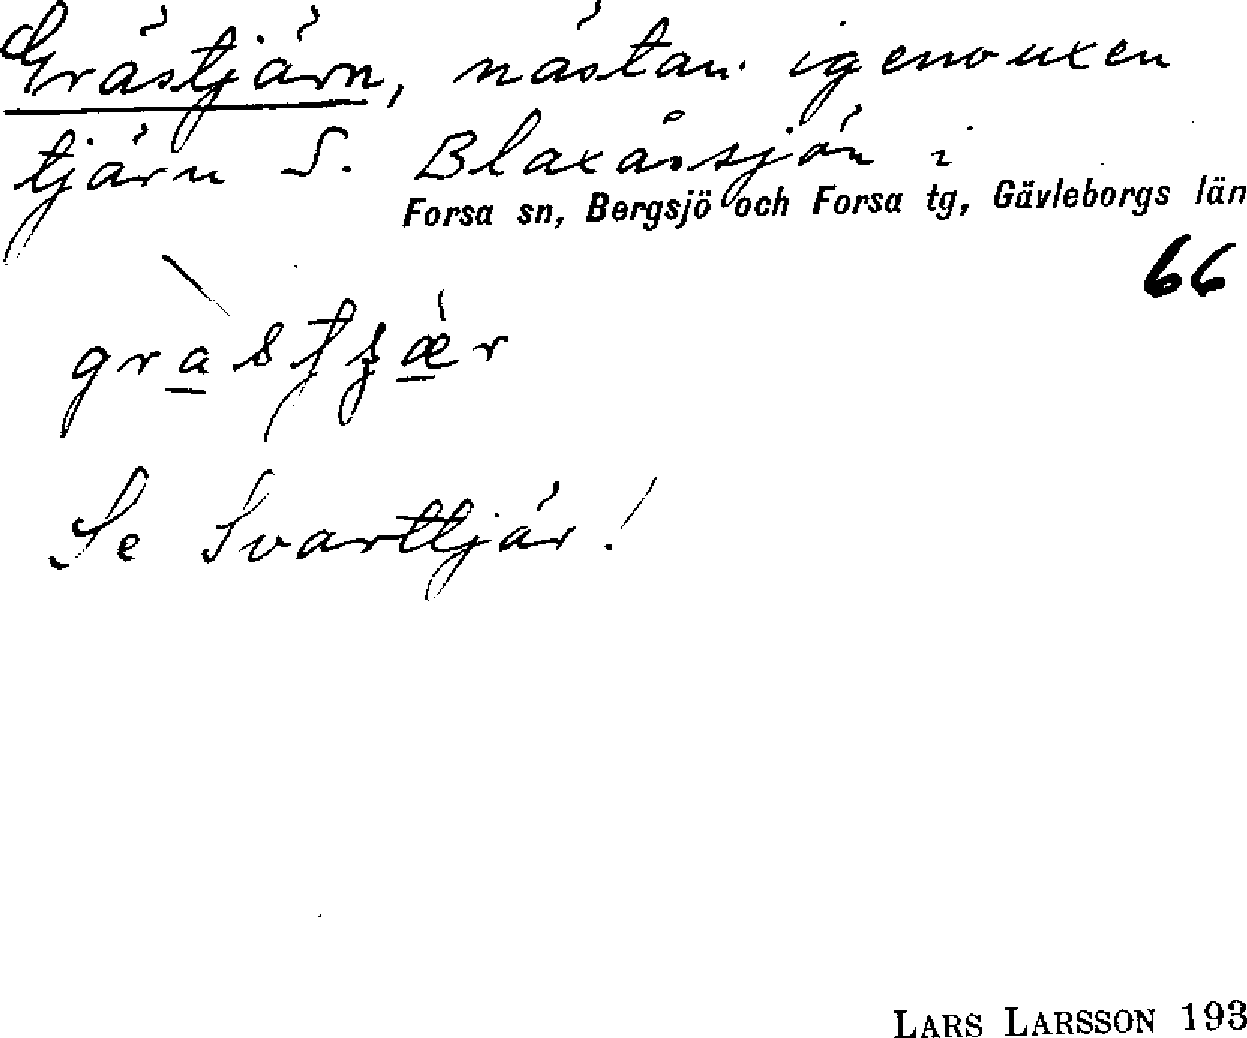 Grästjärn, nästan igenvuxen
tjärn S. Blaxåssjön i
Forsa sn, Bergsjö och Forsa tg, Gävleborgs län
66
Se Svarttjär!
LARS LARSSON 193